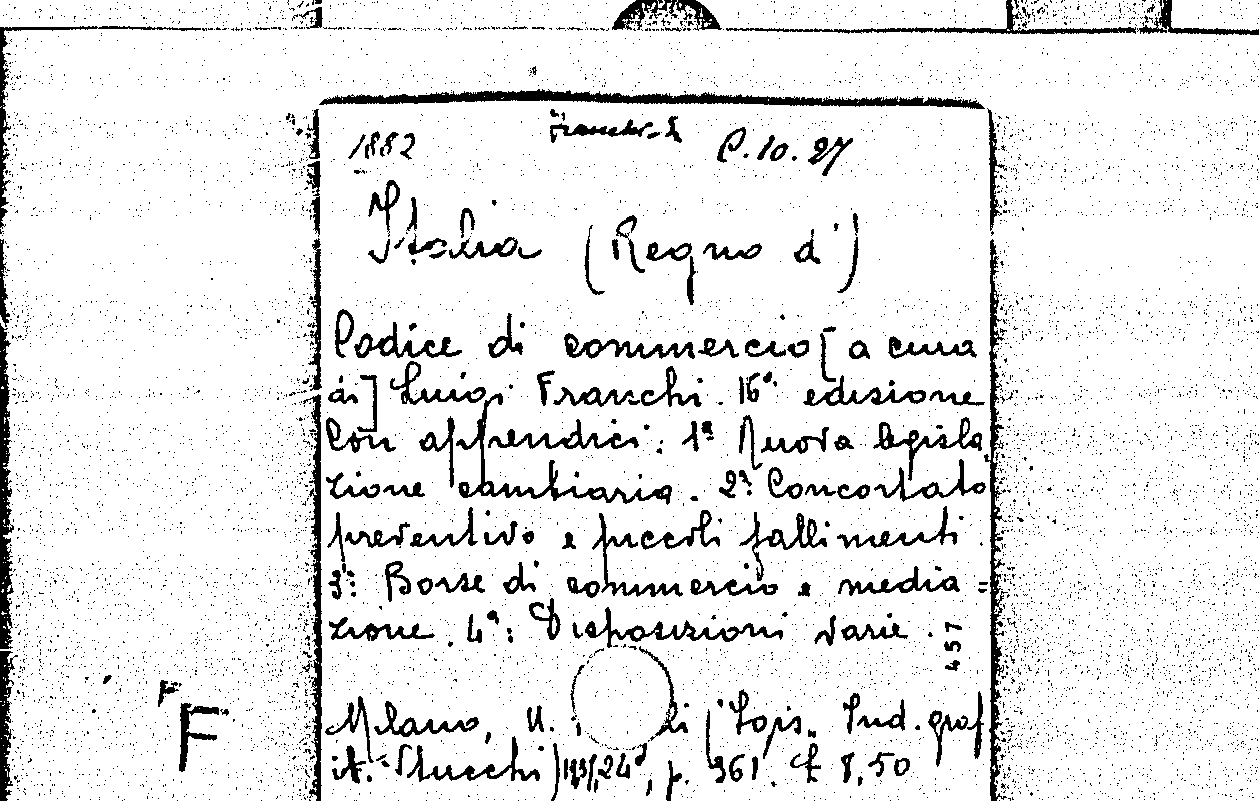 1882 Franchi L. C.10.27
Italia (Regno d')
Codice di commercio [a cura
di] Luigi Franchi. 16ª edizione
Con appendici: 1ª Nuova legisla
zione cambiaria. 2ª: Concordato
preventivo e piccoli fallimenti.
3ª: Borse di commercio e media=
zione. 4ª: Disposizioni varie.
457
Milano, U. li (Tops. Ind. graf.
it. Stucchi) 24°, p. 961. £ 8,50
F
F